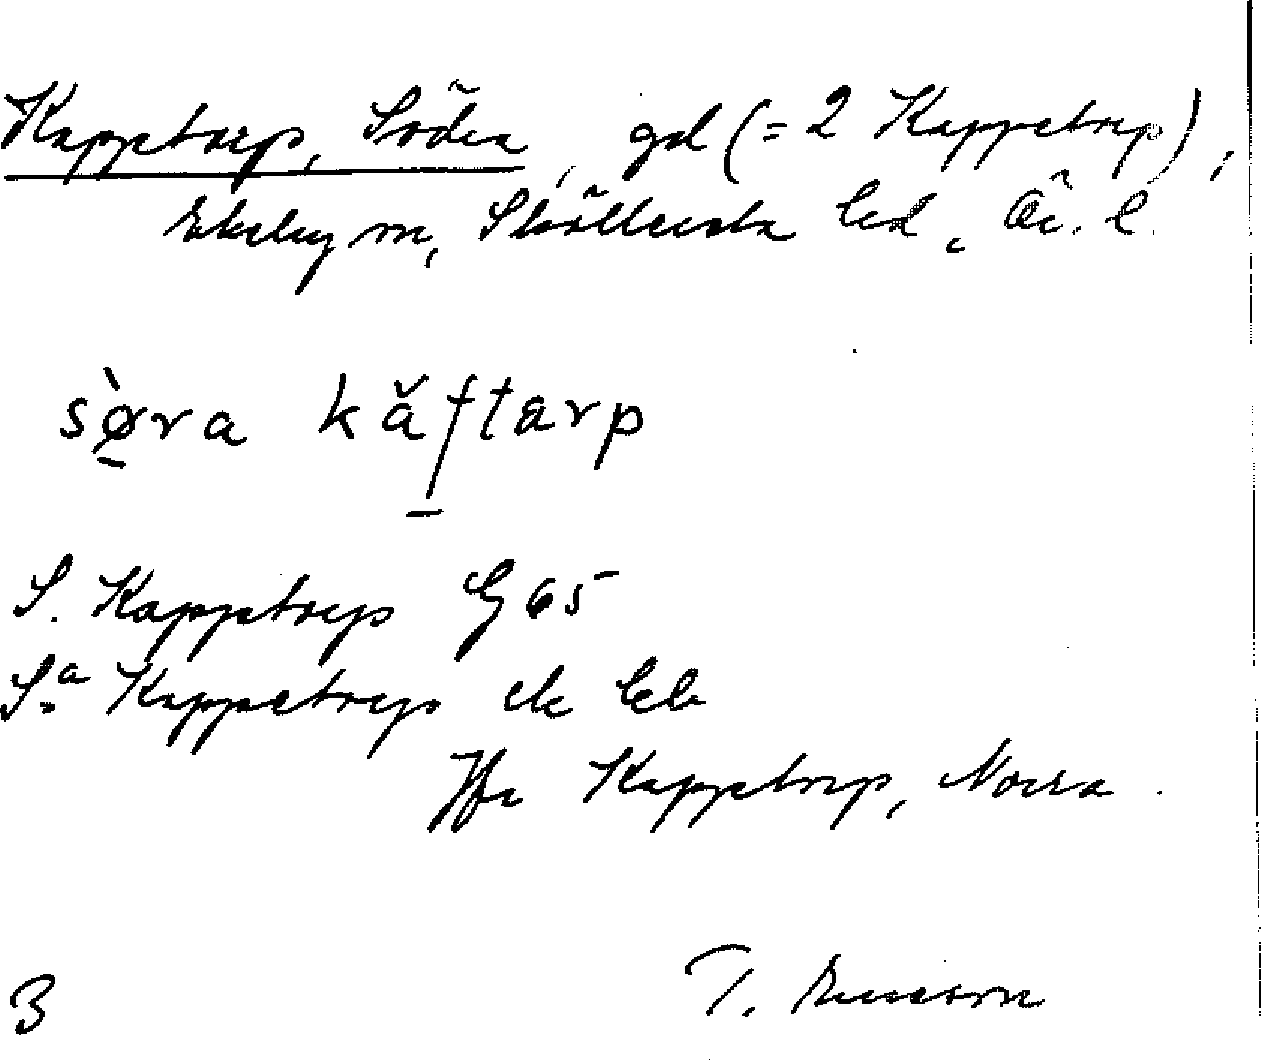 Kappetorp, Södra, gd (= 2 Kappetorp),
Ekeby sn, Sköllersta hd, Ör. l.
sø̀ra kăftarp
S. Kappetorp G 65
S:a Kappetorp
Jfr Kappetorp, Norra.
3 T. Ericsson